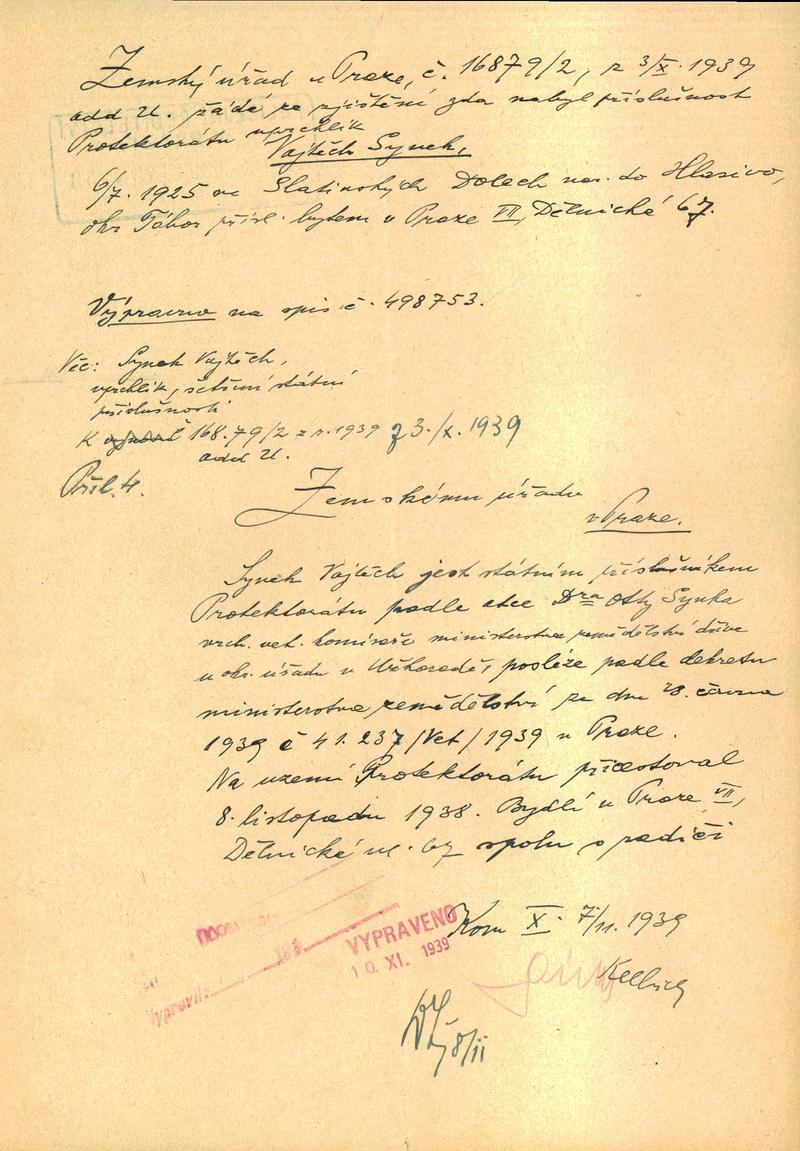 Zemský úřad v Praze, č. 16879/2, z 3/X. 1939
add U. žádá ze zjištění zda nabyl příslušnost
Protektorátu uprchlík
Vojtěch Synek,
6/7. 1925 ve Slatinských Dolech nar. do Hlasivo,
okr Tábor přísl. bytem v Praze VII, Dělnická 67.
Výpravna na spis č. 498753.
Věc: Synek Vojtěch,
uprchlík, šetření státní
příslušnosti
K 168.79/2 z r. 1939 z 3./X. 1939
add U.
Příl. 4.
Zemskému úřadu
v Praze.
Synek Vojtěch jest státním příslušníkem
Protektorátu podle otce Dra Otty Synka
vrch. vet. komisaře ministerstva zemědělství dříve
u okr. úřadu v Užhorodě, posléze podle dekretu
ministerstva zemědělství ze dne 28. června
1939 č 41.237/Vet/1939 v Praze.
Na území Protektorátu přicestoval
8. listopadu 1938. Bydlí v Praze VII,
Dělnická ul. 67 spolu s rodiči
Kom X. 7/11. 1939
VYPRAVENO
10. XI. 1939
Vypravil:
8/11